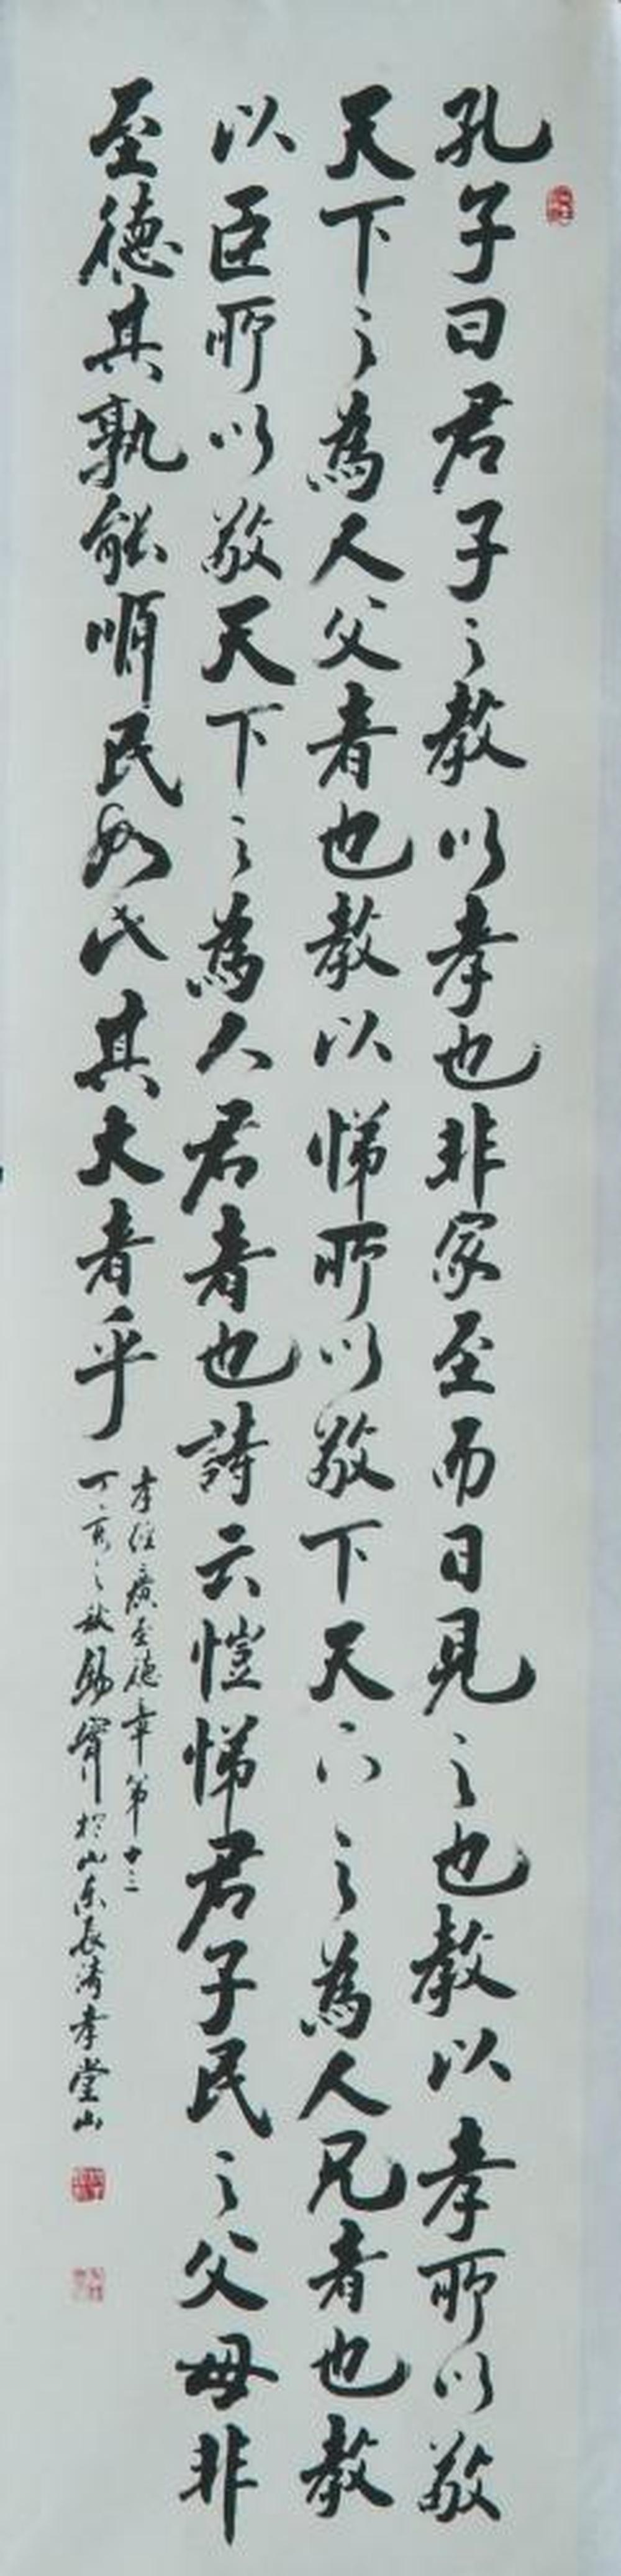 孔子曰君子之教以孝也非家至而日見之也教以孝所以敬
天下之為人父者也教以悌所以敬下天下之為人兄者也教
以臣所以敬天下之為人君者也詩云愷悌君子民之父母非
至德其孰能順民如此其大者乎
孝經廣至德章第十三
丁亥之秋錫寧於山東長清孝堂山